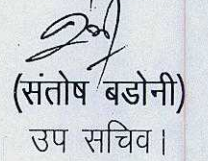 (संतोष बडोनी)
उप सचिव।